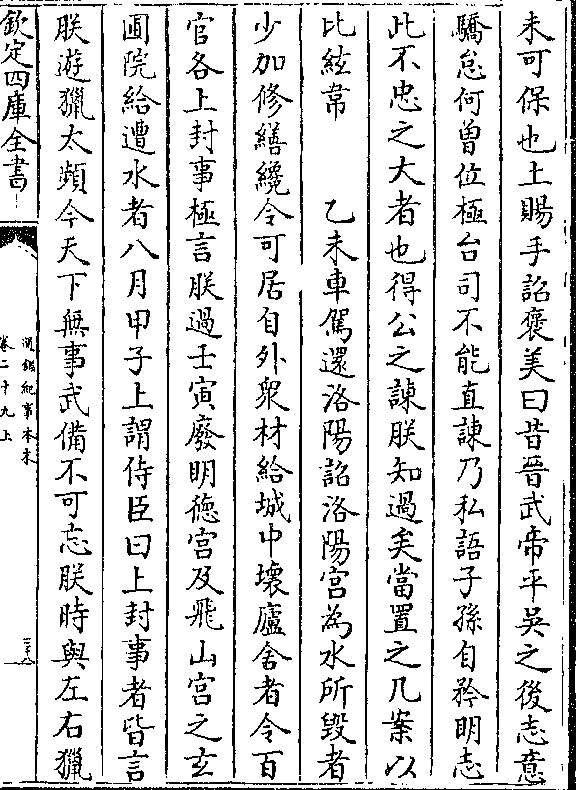 未可保也上賜手詔褒美曰昔晉武帝平吳之後志意
驕怠何曽位極台司不能直諫乃私語子孫自矜明志
此不忠之大者也得公之諫朕知過矣當置之几案以
比絃韋　　乙未車駕還洛陽詔洛陽宮為水所毀者
少加修繕纔令可居自外衆材給城中壞廬舍者令百
官各上封事極言朕過壬寅廢明德宮及飛山宮之玄
圃院給遭水者八月甲子上謂侍臣曰上封事者皆言
朕遊獵太頻今天下無事武備不可忘朕時與左右獵
欽定四庫全書
通鑑紀事本末
卷二十九上
三十八